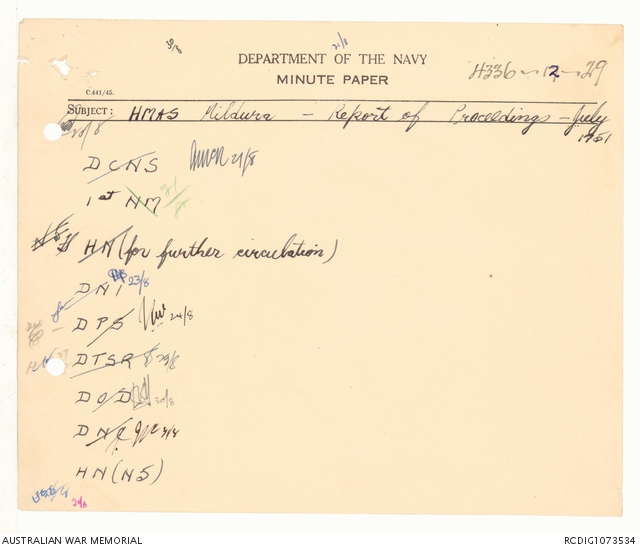 21/8
DEPARTMENT OF THE NAVY
MINUTE PAPER
4336-12-29
C.441/45.
SUBJECT: HMAS Mildura - Report of Proceedings - July 1951
20/8
DCNS 21/8
1st NM
HN (for further circulation)
DNI 23/8
DPS 24/8
DTSR 29/8
DOD 30/8
DNC 31/8
HN (NS)
AUSTRALIAN WAR MEMORIAL
RCDIG1073534